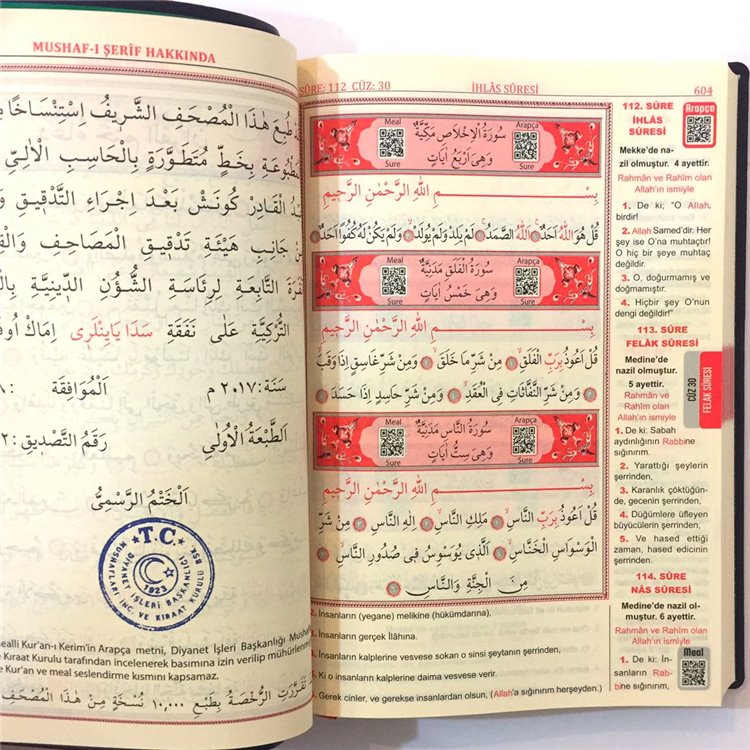 MUSHAF-I ŞERİF HAKKINDA
طَبْعَ هٰذَا الْمُصْحَفِ الشَّرٖيفِ اِسْتِنْسَاخًا
بِخَطٍّ مُتَطَوِّرَةٍ بِالْحَاسِبِ الْاٰلِيِّ
الْقَادِرِ كُونَشْ بَعْدَ اِجْرَاءِ التَّدْقٖيقِ
جَانِبِ هَيْئَةِ تَدْقٖيقِ الْمَصَاحِفِ
التَّابِعَةِ لِرِئَاسَةِ الشُّؤُنِ الدّٖينِيَّةِ
التُّرْكِيَّةِ عَلٰى نَفَقَةِ سَدَا يَايِنْلَرِى
سَنَة: ٢٠١٧ م الْمُوَافَقَة:
اَلطَّبْعَةُ الْاُولٰى رَقْمُ التَّصْدٖيقِ:
اَلْخَتْمُ الرَّسْمِىُّ
T.C.
DİYANET İŞLERİ BAŞKANLIĞI
MUSHAFLARI İNC. VE KIRAAT KURULU BŞK.
1923
Kur'an-ı Kerim'in Arapça metni, Diyanet İşleri Başkanlığı
Kıraat Kurulu tarafından incelenerek basımına izin verilip
Kur'an ve meal seslendirme kısmını kapsamaz.
تَقَرَّرَتِ الرُّخْصَةُ بِطَبْعِ ١٠,٠٠٠ نُسْخَةٍ مِنْ هٰذَا الْمُصْحَفِ
SÛRE: 112 CÜZ: 30 İHLÂS SÛRESİ 604
Meal Arapça
سُورَةُ الْاِخْلَاصِ مَكِّيَّةٌ
وَهِىَ اَرْبَعُ اٰيَاتٍ
Sure Sure
بِسْــمِ اللهِ الرَّحْمٰنِ الرَّحٖيمِ
قُلْ هُوَ اللهُ اَحَدٌ اَللهُ الصَّمَدُ لَمْ يَلِدْ وَلَمْ يُولَدْ وَلَمْ يَكُنْ لَهُ كُفُوًا اَحَدٌ
Meal Arapça
سُورَةُ الْفَلَقِ مَدَنِيَّةٌ
وَهِىَ خَمْسُ اٰيَاتٍ
Sure Sure
بِسْــمِ اللهِ الرَّحْمٰنِ الرَّحٖيمِ
قُلْ اَعُوذُ بِرَبِّ الْفَلَقِ مِنْ شَرِّ مَا خَلَقَ وَمِنْ شَرِّ غَاسِقٍ اِذَا وَقَبَ
وَمِنْ شَرِّ النَّفَّاثَاتِ فِى الْعُقَدِ وَمِنْ شَرِّ حَاسِدٍ اِذَا حَسَدَ
Meal Arapça
سُورَةُ النَّاسِ مَدَنِيَّةٌ
وَهِىَ سِتُّ اٰيَاتٍ
Sure Sure
بِسْــمِ اللهِ الرَّحْمٰنِ الرَّحٖيمِ
قُلْ اَعُوذُ بِرَبِّ النَّاسِ مَلِكِ النَّاسِ اِلٰهِ النَّاسِ مِنْ شَرِّ
الْوَسْوَاسِ الْخَنَّاسِ اَلَّذٖى يُوَسْوِسُ فٖى صُدُورِ النَّاسِ
مِنَ الْجِنَّةِ وَالنَّاسِ
2. İnsanların (yegane) melikine (hükümdarına),
İnsanların gerçek İlâhına.
İnsanların kalplerine vesvese sokan o sinsi şeytanın şerrinden,
Ki o insanların kalplerine daima vesvese verir.
Gerek cinler, ve gerekse insanlardan olsun, (Allah'a sığınırım herşeyden.)
112. SÛRE
İHLÂS
SÛRESİ
Arapça
Mekke'de na-
zil olmuştur. 4 ayettir.
Rahmân ve Rahîm olan
Allah'ın ismiyle
1. De ki; "O Allah,
birdir!
2. Allah Samed'dir. Her
şey ise O'na muhtaçtır!
O hiç bir şeye muhtaç
değildir.
3. O, doğurmamış ve
doğmamıştır.
4. Hiçbir şey O'nun
dengi değildir!"
113. SÛRE
FELÂK SÛRESİ
Medine'de
nazil olmuştur.
5 ayettir.
Rahmân ve
Rahîm olan
Allah'ın ismiyle
1. De ki: Sabah
aydınlığının Rabbine
sığınırım.
2. Yarattığı şeylerin
şerrinden,
3. Karanlık çöktüğün-
de, gecenin şerrinden,
4. Düğümlere üfleyen
büyücülerin şerrinden,
5. Ve hased ettiği
zaman, hased edicinin
şerrinden.
114. SÛRE
NÂS SÛRESİ
Medine'de nazil ol-
muştur. 6 ayettir.
Rahmân ve Rahîm olan
Allah'ın ismiyle
1. De ki: İn-
sanların Rab-
bine sığınırım,
Meal
CÜZ 30
FELAK SÛRESİ